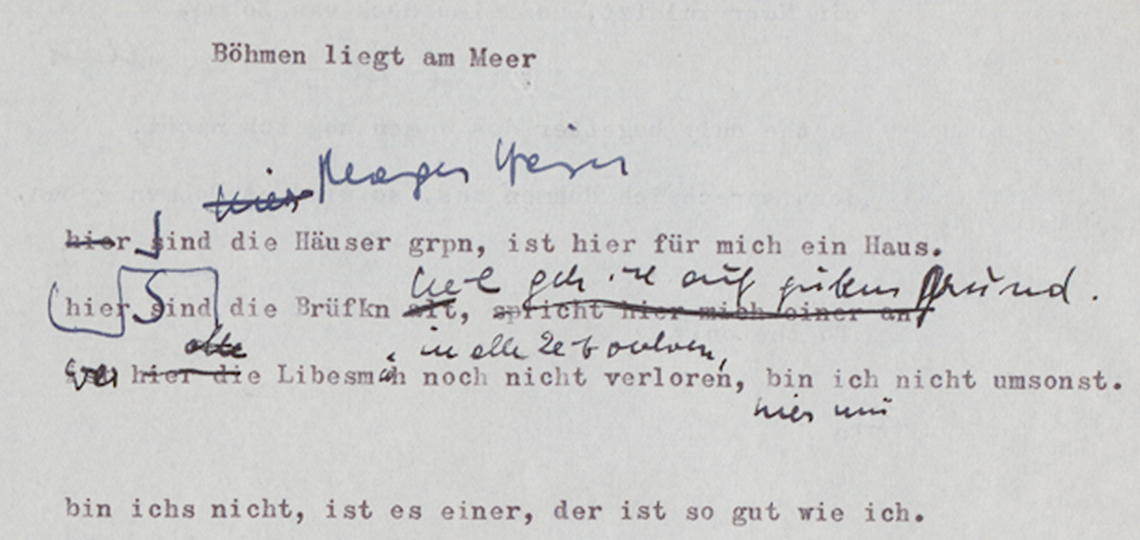 Böhmen liegt am Meer
hier
hier sind die Häuser grpn, ist hier für mich ein Haus.
geh ich auf gutem Grund.
hier sind die Brüfkn alt, spricht hier mich einer an
alte in alle Zeit verloren,
hier die Libesmüh noch nicht verloren, bin ich nicht umsonst.
hier
bin ichs nicht, ist es einer, der ist so gut wie ich.